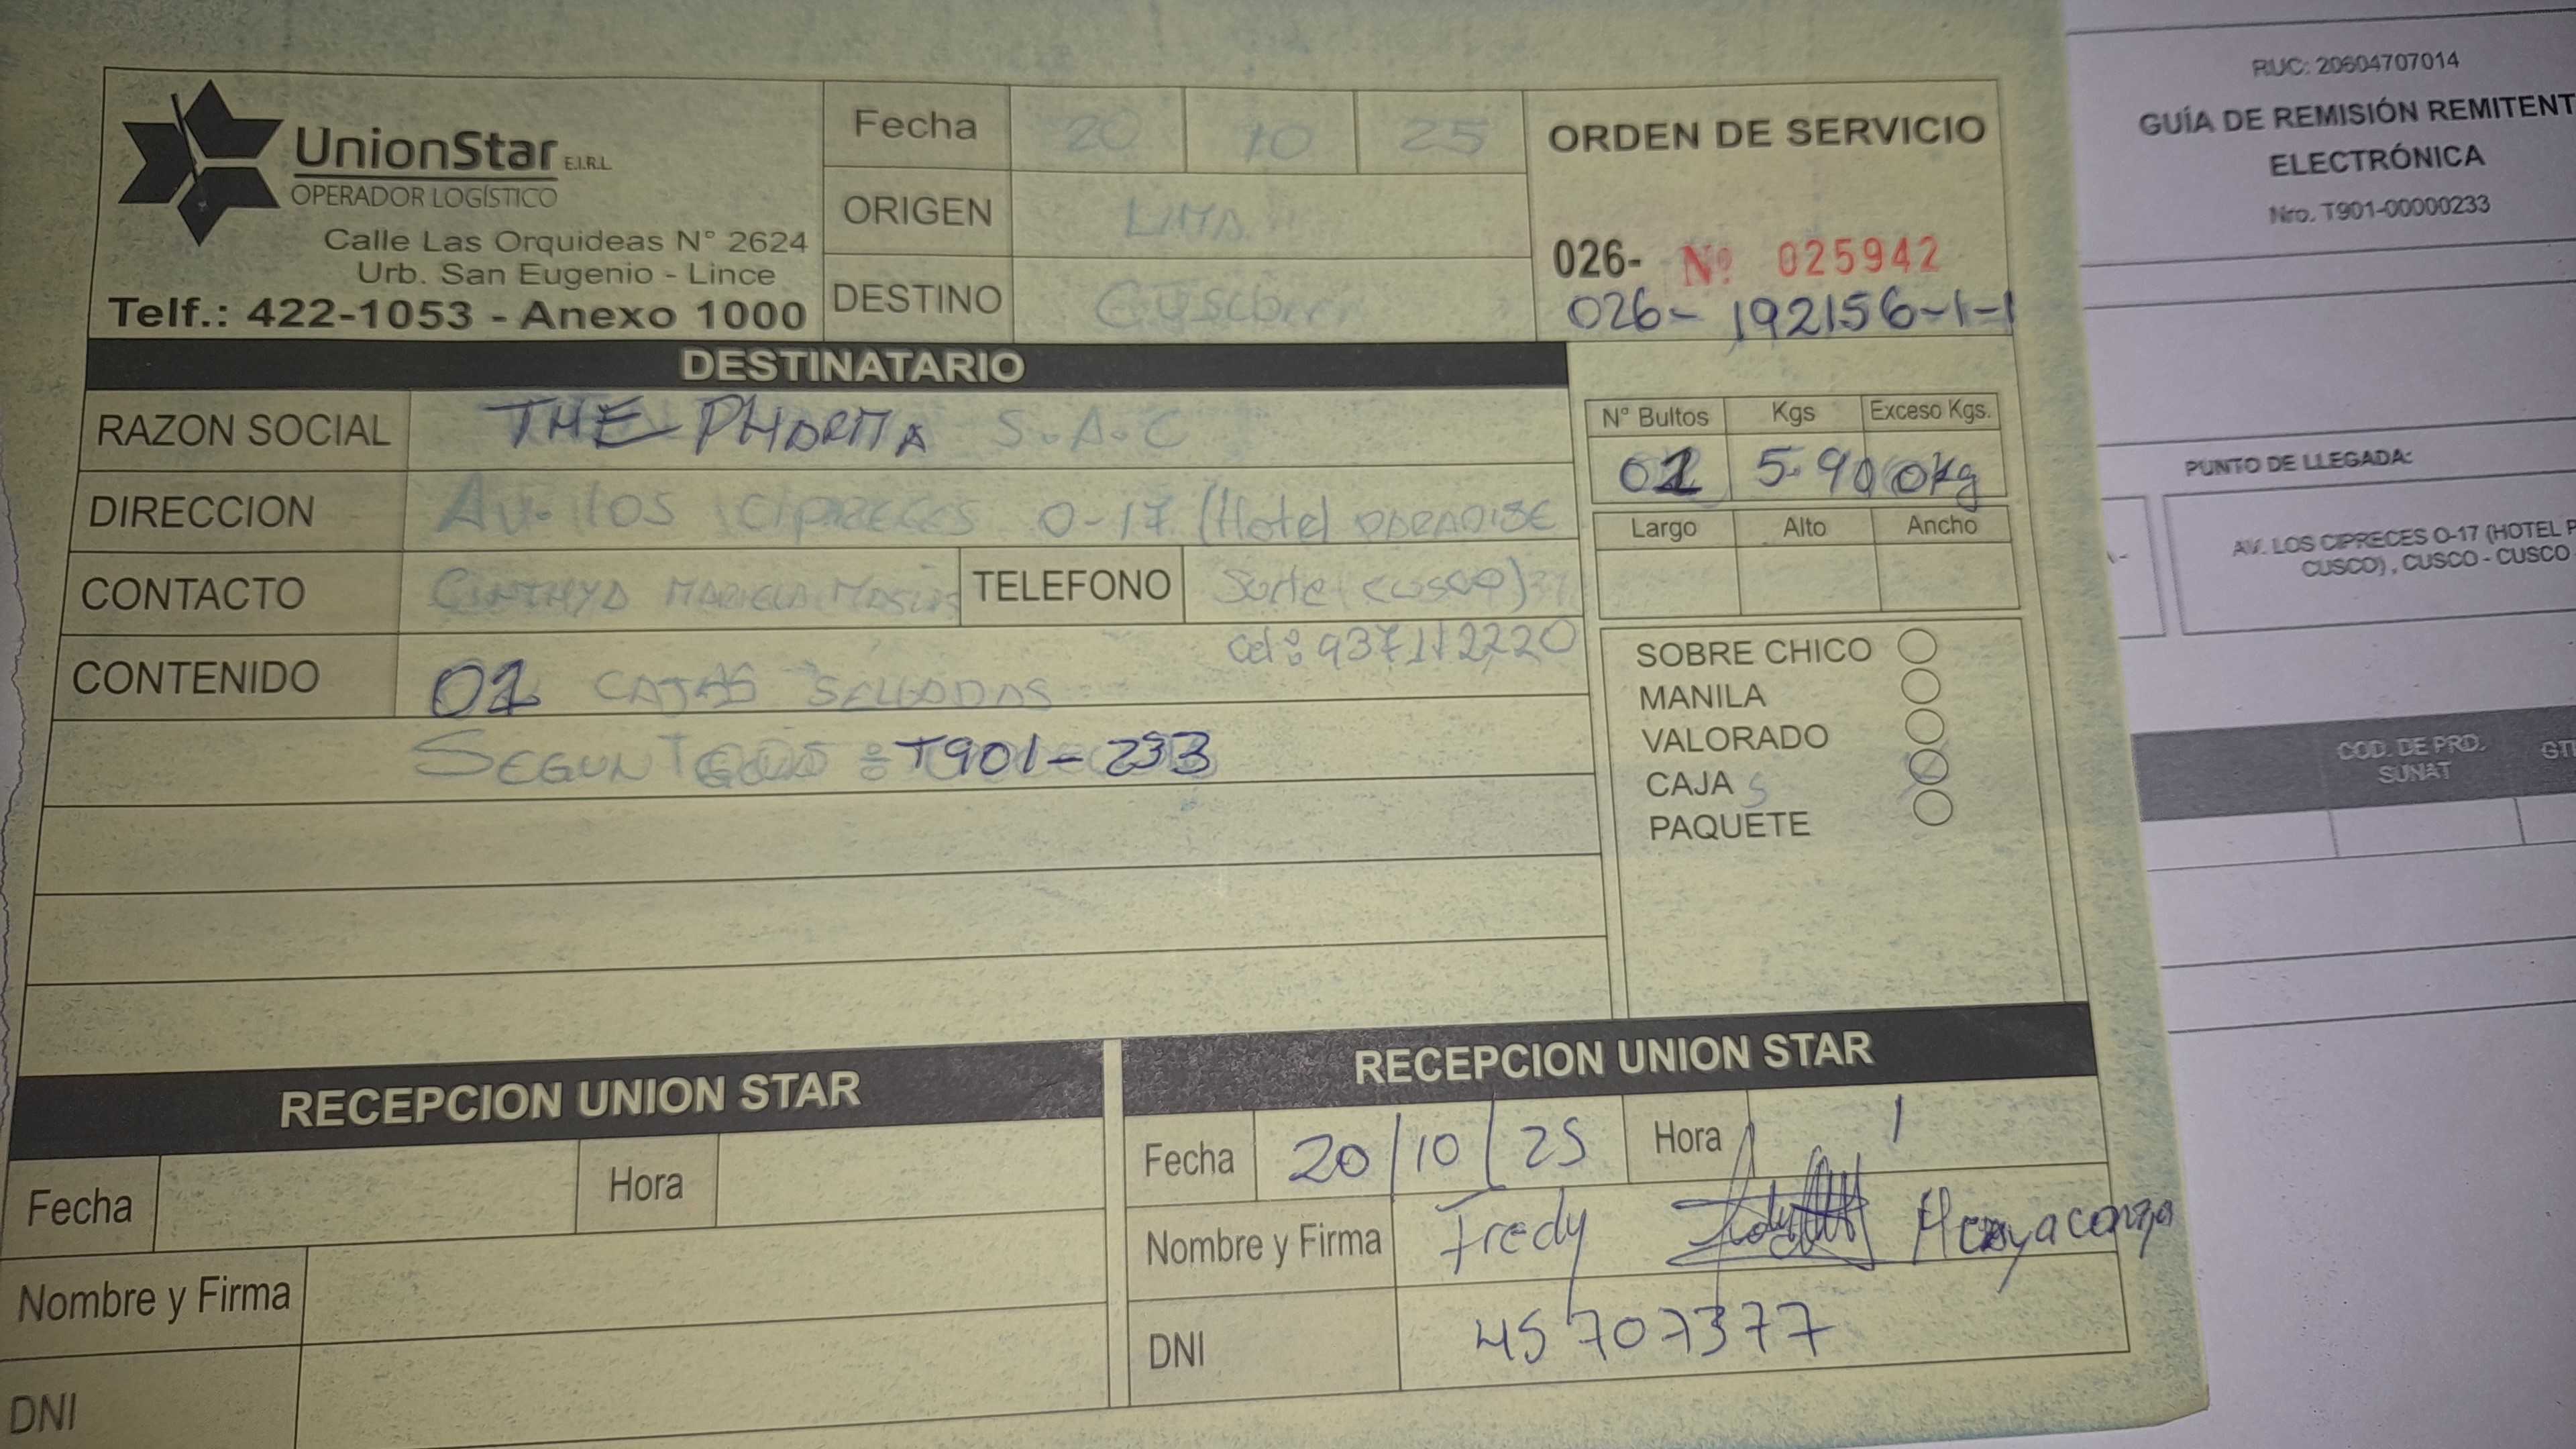 UnionStar E.I.R.L
OPERADOR LOGÍSTICO
Calle Las Orquideas N° 2624
Urb. San Eugenio - Lince
Telf.: 422-1053 - Anexo 1000
Fecha 20 10 25
ORIGEN LIMA
DESTINO CUSCO
ORDEN DE SERVICIO
026- Nº 025942
026- 192156-1-1
DESTINATARIO
RAZON SOCIAL THE PHARMA S.A.C
DIRECCION Av. los CIPRECES O-17 (Hotel PARADISE
CONTACTO CINTHYA MARIELA
TELEFONO Suite (cusco)
cel: 937112220
CONTENIDO 01 CAJAS SELLADAS
SEGUN T901-233
N° Bultos Kgs Exceso Kgs.
01 5.900kg
Largo Alto Ancho
SOBRE CHICO
MANILA
VALORADO
CAJA S
PAQUETE
RECEPCION UNION STAR
Fecha Hora
Nombre y Firma
DNI
RECEPCION UNION STAR
Fecha 20/10/25 Hora
Nombre y Firma Fredy
DNI 45707377
RUC: 20604707014
GUÍA DE REMISIÓN REMITENT
ELECTRÓNICA
Nro. T901-00000233
PUNTO DE LLEGADA:
AV. LOS CIPRECES O-17 (HOTEL P
CUSCO) , CUSCO - CUSCO
COD. DE PRD.
SUNAT